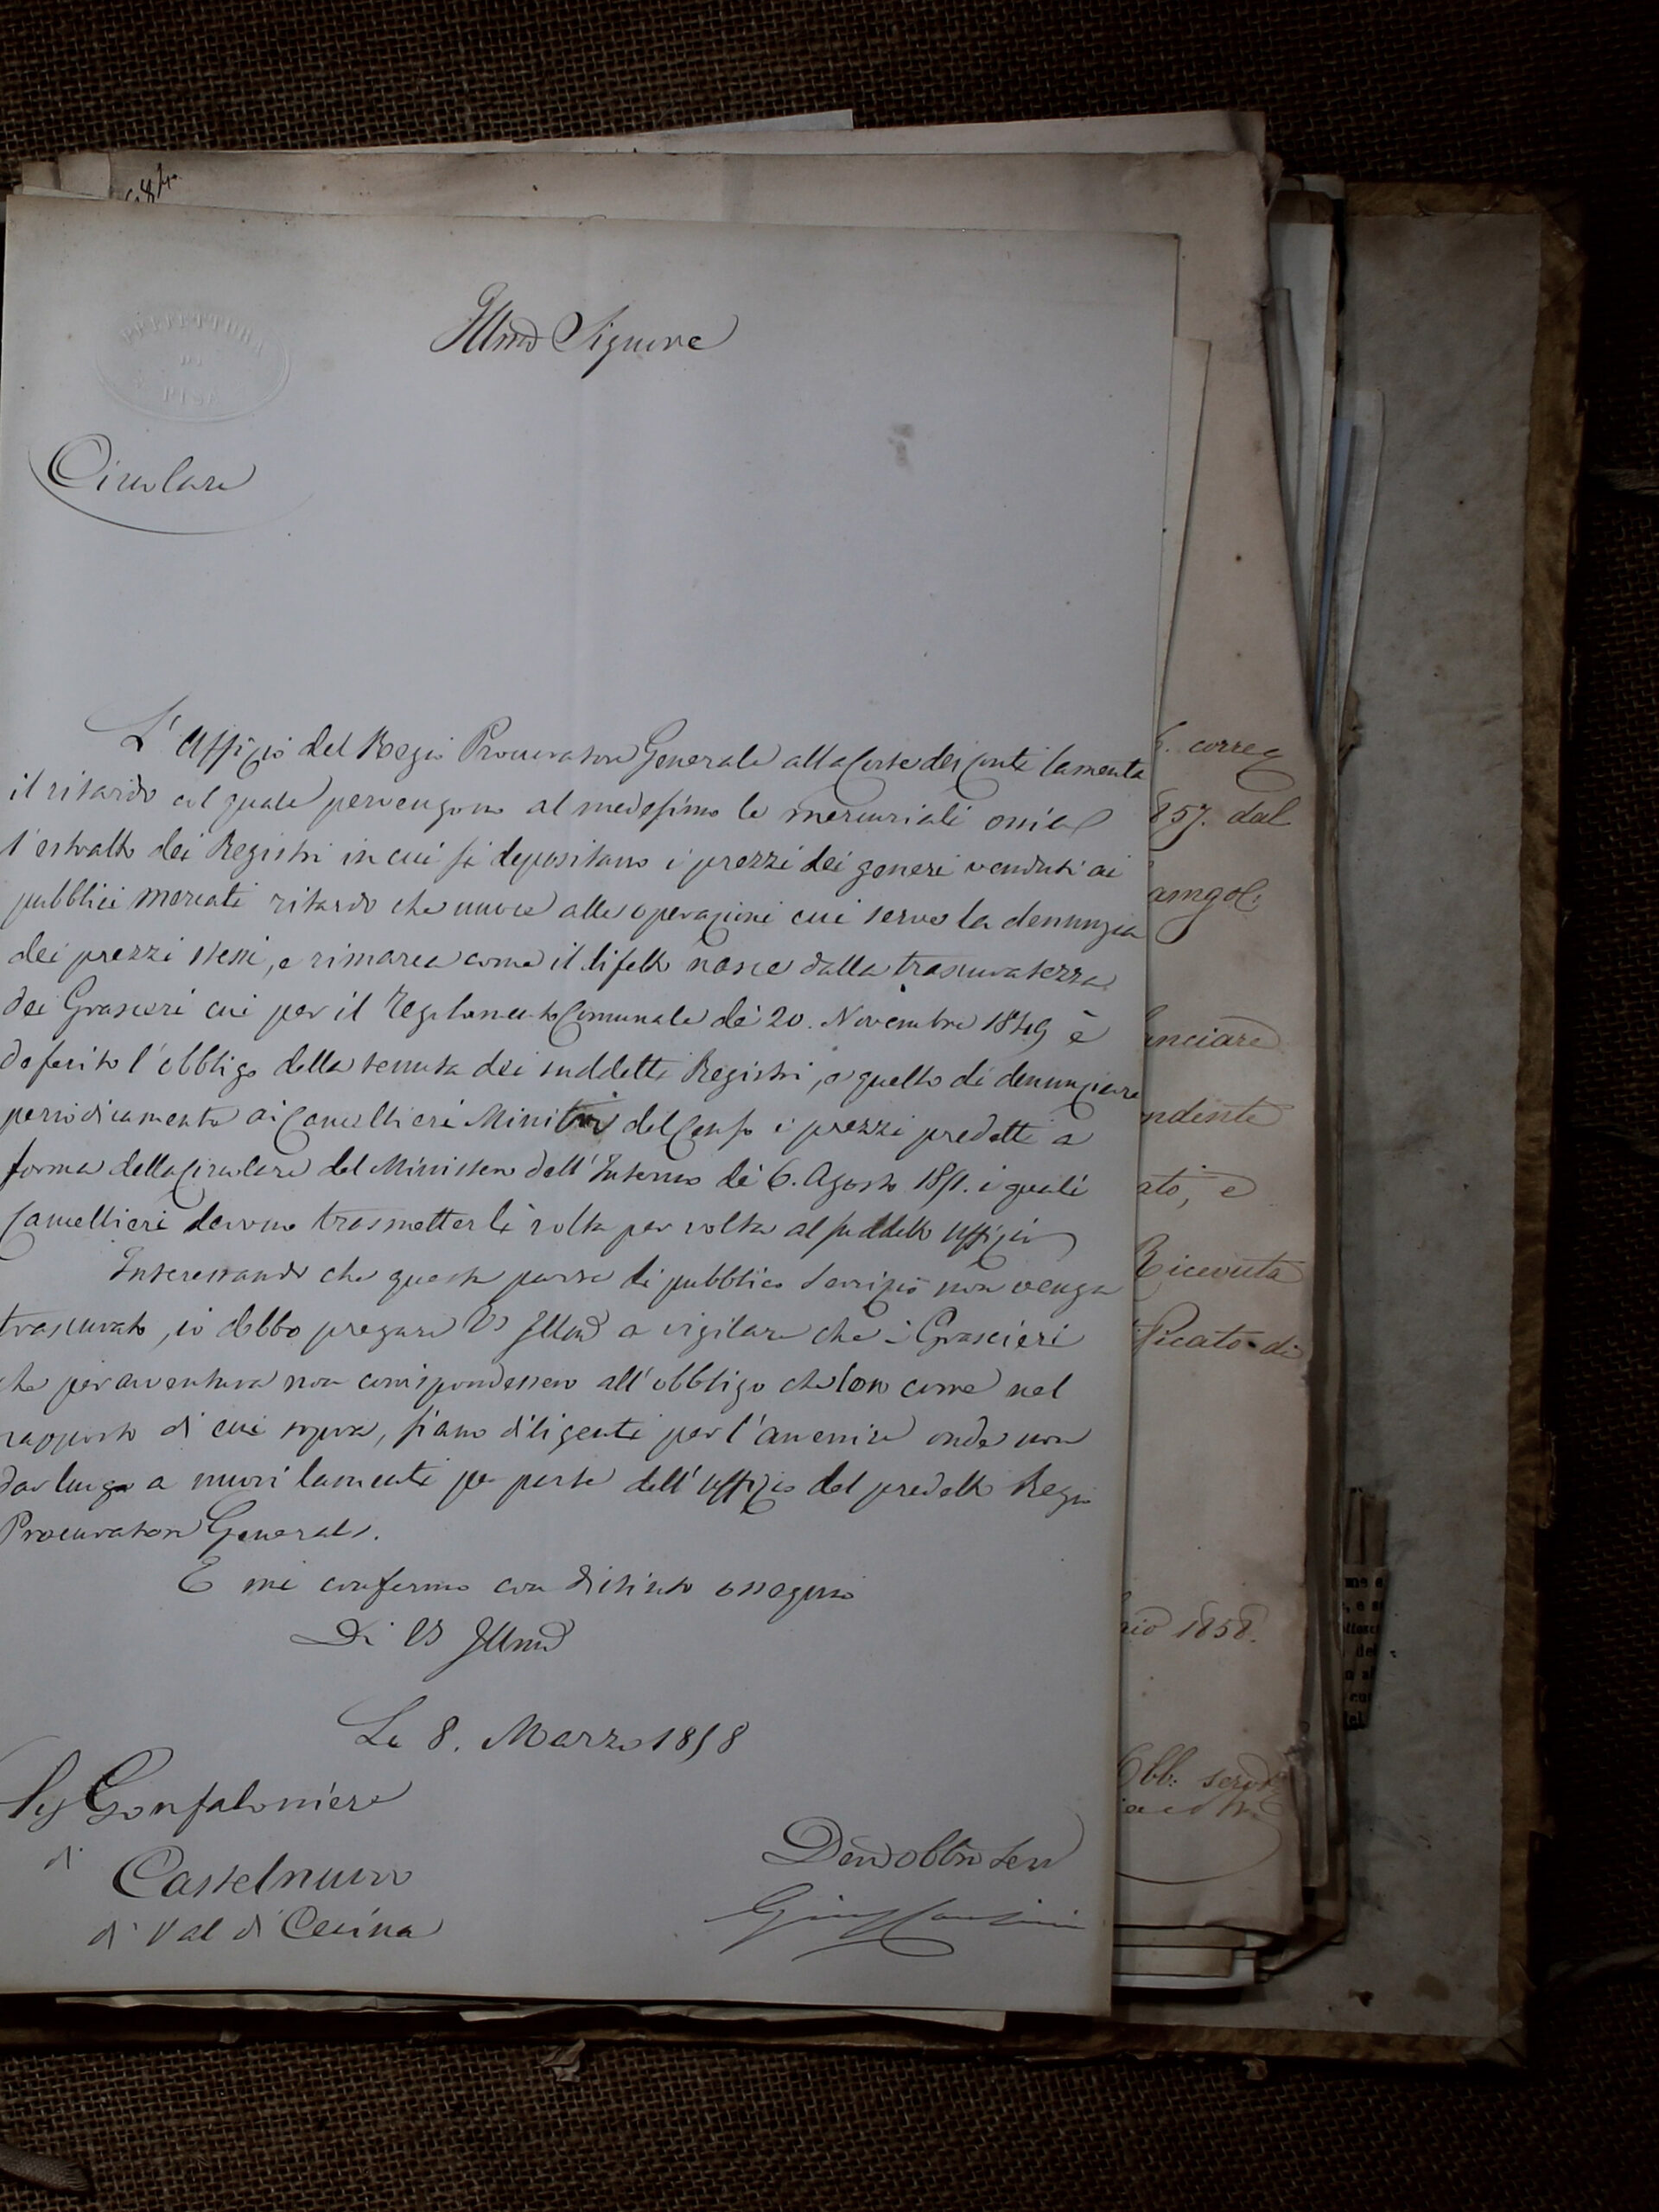 PREFETTURA
DI
PISA
Illmo Signore
Circolare
L'Uffizio del Regio Procuratore Generale alla Corte dei Conti lamenta
il ritardo col quale pervengono al medesimo le mercuriali ossia
l'estratto dei Registri in cui si depositano i prezzi dei generi venduti ai
pubblici mercati ritardo che nuoce alle operazioni cui serve la denunzia
dei prezzi stessi, e rimarca come il difetto nasce dalla trascuratezza
dei Grascieri cui per il Regolamento Comunale de' 20. Novembre 1849 è
deferito l'obbligo della tenuta dei suddetti Registri, e quello di denunziare
periodicamente ai Cancellieri Ministri del Censo i prezzi predetti a
forma della Circolare del Ministero dell'Interno de' 6. Agosto 1851. i quali
Cancellieri devono trasmetterli volta per volta al suddetto Uffizio
Interessando che questa parte di pubblico servizio non venga
trascurato, io debbo pregare VS Illma a vigilare che i Grascieri
che per avventura non corrispondessero all'obbligo che loro corre nel
rapporto di cui sopra, siano diligenti per l'avvenire onde non
dar luogo a nuovi lamenti per parte dell'Uffizio del predetto Regio
Procuratore Generale.
E mi confermo con distinto ossequio
Di VS Illma
Le 8. Marzo 1858
Sig Gonfaloniere
di
Castelnuovo
di Val di Cecina
Devo obbmo Serv
correg
857. dal
amgol.
nciare
ndente
ato, e
Ricevuta
ficato di
1858.
Obb: serv